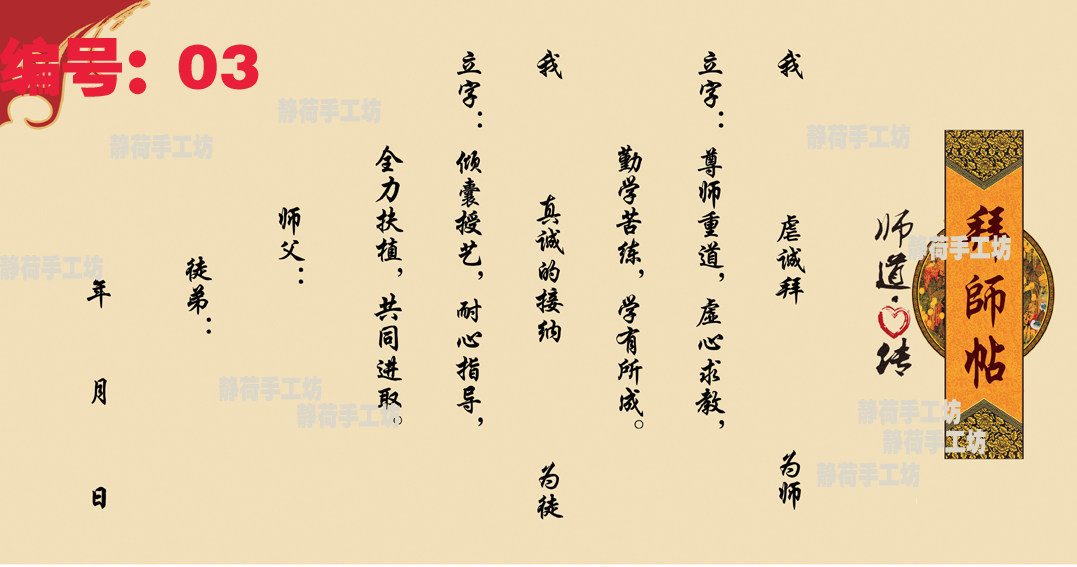 编号：03
拜師帖
师道·传
我 虔诚拜 为师
立字：尊师重道，虚心求教，
勤学苦练，学有所成。
我 真诚的接纳 为徒
立字：倾囊授艺，耐心指导，
全力扶植，共同进取。
师父：
徒弟：
年 月 日
静荷手工坊
静荷手工坊
静荷手工坊
静荷手工坊
静荷手工坊
静荷手工坊
静荷手工坊
静荷手工坊
静荷手工坊
静荷手工坊